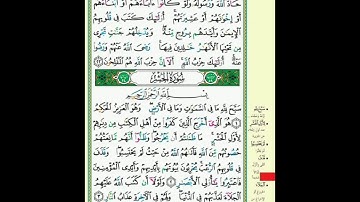 حَآدَّ ٱللَّهَ وَرَسُولَهُۥ وَلَوۡ كَانُوٓاْ ءَابَآءَهُمۡ أَوۡ أَبۡنَآءَهُمۡ
أَوۡ إِخۡوَٰنَهُمۡ أَوۡ عَشِيرَتَهُمۡۚ أُوْلَٰٓئِكَ كَتَبَ فِي قُلُوبِهِمُ
ٱلۡإِيمَٰنَ وَأَيَّدَهُم بِرُوحٖ مِّنۡهُۖ وَيُدۡخِلُهُمۡ جَنَّٰتٖ تَجۡرِي
مِن تَحۡتِهَا ٱلۡأَنۡهَٰرُ خَٰلِدِينَ فِيهَاۚ رَضِيَ ٱللَّهُ عَنۡهُمۡ وَرَضُواْ
عَنۡهُۚ أُوْلَٰٓئِكَ حِزۡبُ ٱللَّهِۚ أَلَآ إِنَّ حِزۡبَ ٱللَّهِ هُمُ ٱلۡمُفۡلِحُونَ ٢٢
سُورَةُ الحَشۡرِ
بِسۡمِ ٱللَّهِ ٱلرَّحۡمَٰنِ ٱلرَّحِيمِ
سَبَّحَ لِلَّهِ مَا فِي ٱلسَّمَٰوَٰتِ وَمَا فِي ٱلۡأَرۡضِۖ وَهُوَ ٱلۡعَزِيزُ ٱلۡحَكِيمُ
١ هُوَ ٱلَّذِيٓ أَخۡرَجَ ٱلَّذِينَ كَفَرُواْ مِنۡ أَهۡلِ ٱلۡكِتَٰبِ مِن دِيَٰرِهِمۡ
لِأَوَّلِ ٱلۡحَشۡرِۚ مَا ظَنَنتُمۡ أَن يَخۡرُجُواْۖ وَظَنُّوٓاْ أَنَّهُم مَّانِعَتُهُمۡ
حُصُونُهُم مِّنَ ٱللَّهِ فَأَتَىٰهُمُ ٱللَّهُ مِنۡ حَيۡثُ لَمۡ يَحۡتَسِبُواْۖ وَقَذَفَ
فِي قُلُوبِهِمُ ٱلرُّعۡبَۚ يُخۡرِبُونَ بُيُوتَهُم بِأَيۡدِيهِمۡ وَأَيۡدِي ٱلۡمُؤۡمِنِينَ
فَٱعۡتَبِرُواْ يَٰٓأُوْلِي ٱلۡأَبۡصَٰرِ ٢ وَلَوۡلَآ أَن كَتَبَ ٱللَّهُ عَلَيۡهِمُ
ٱلۡجَلَآءَ لَعَذَّبَهُمۡ فِي ٱلدُّنۡيَاۖ وَلَهُمۡ فِي ٱلۡأٓخِرَةِ عَذَابُ ٱلنَّارِ ٣